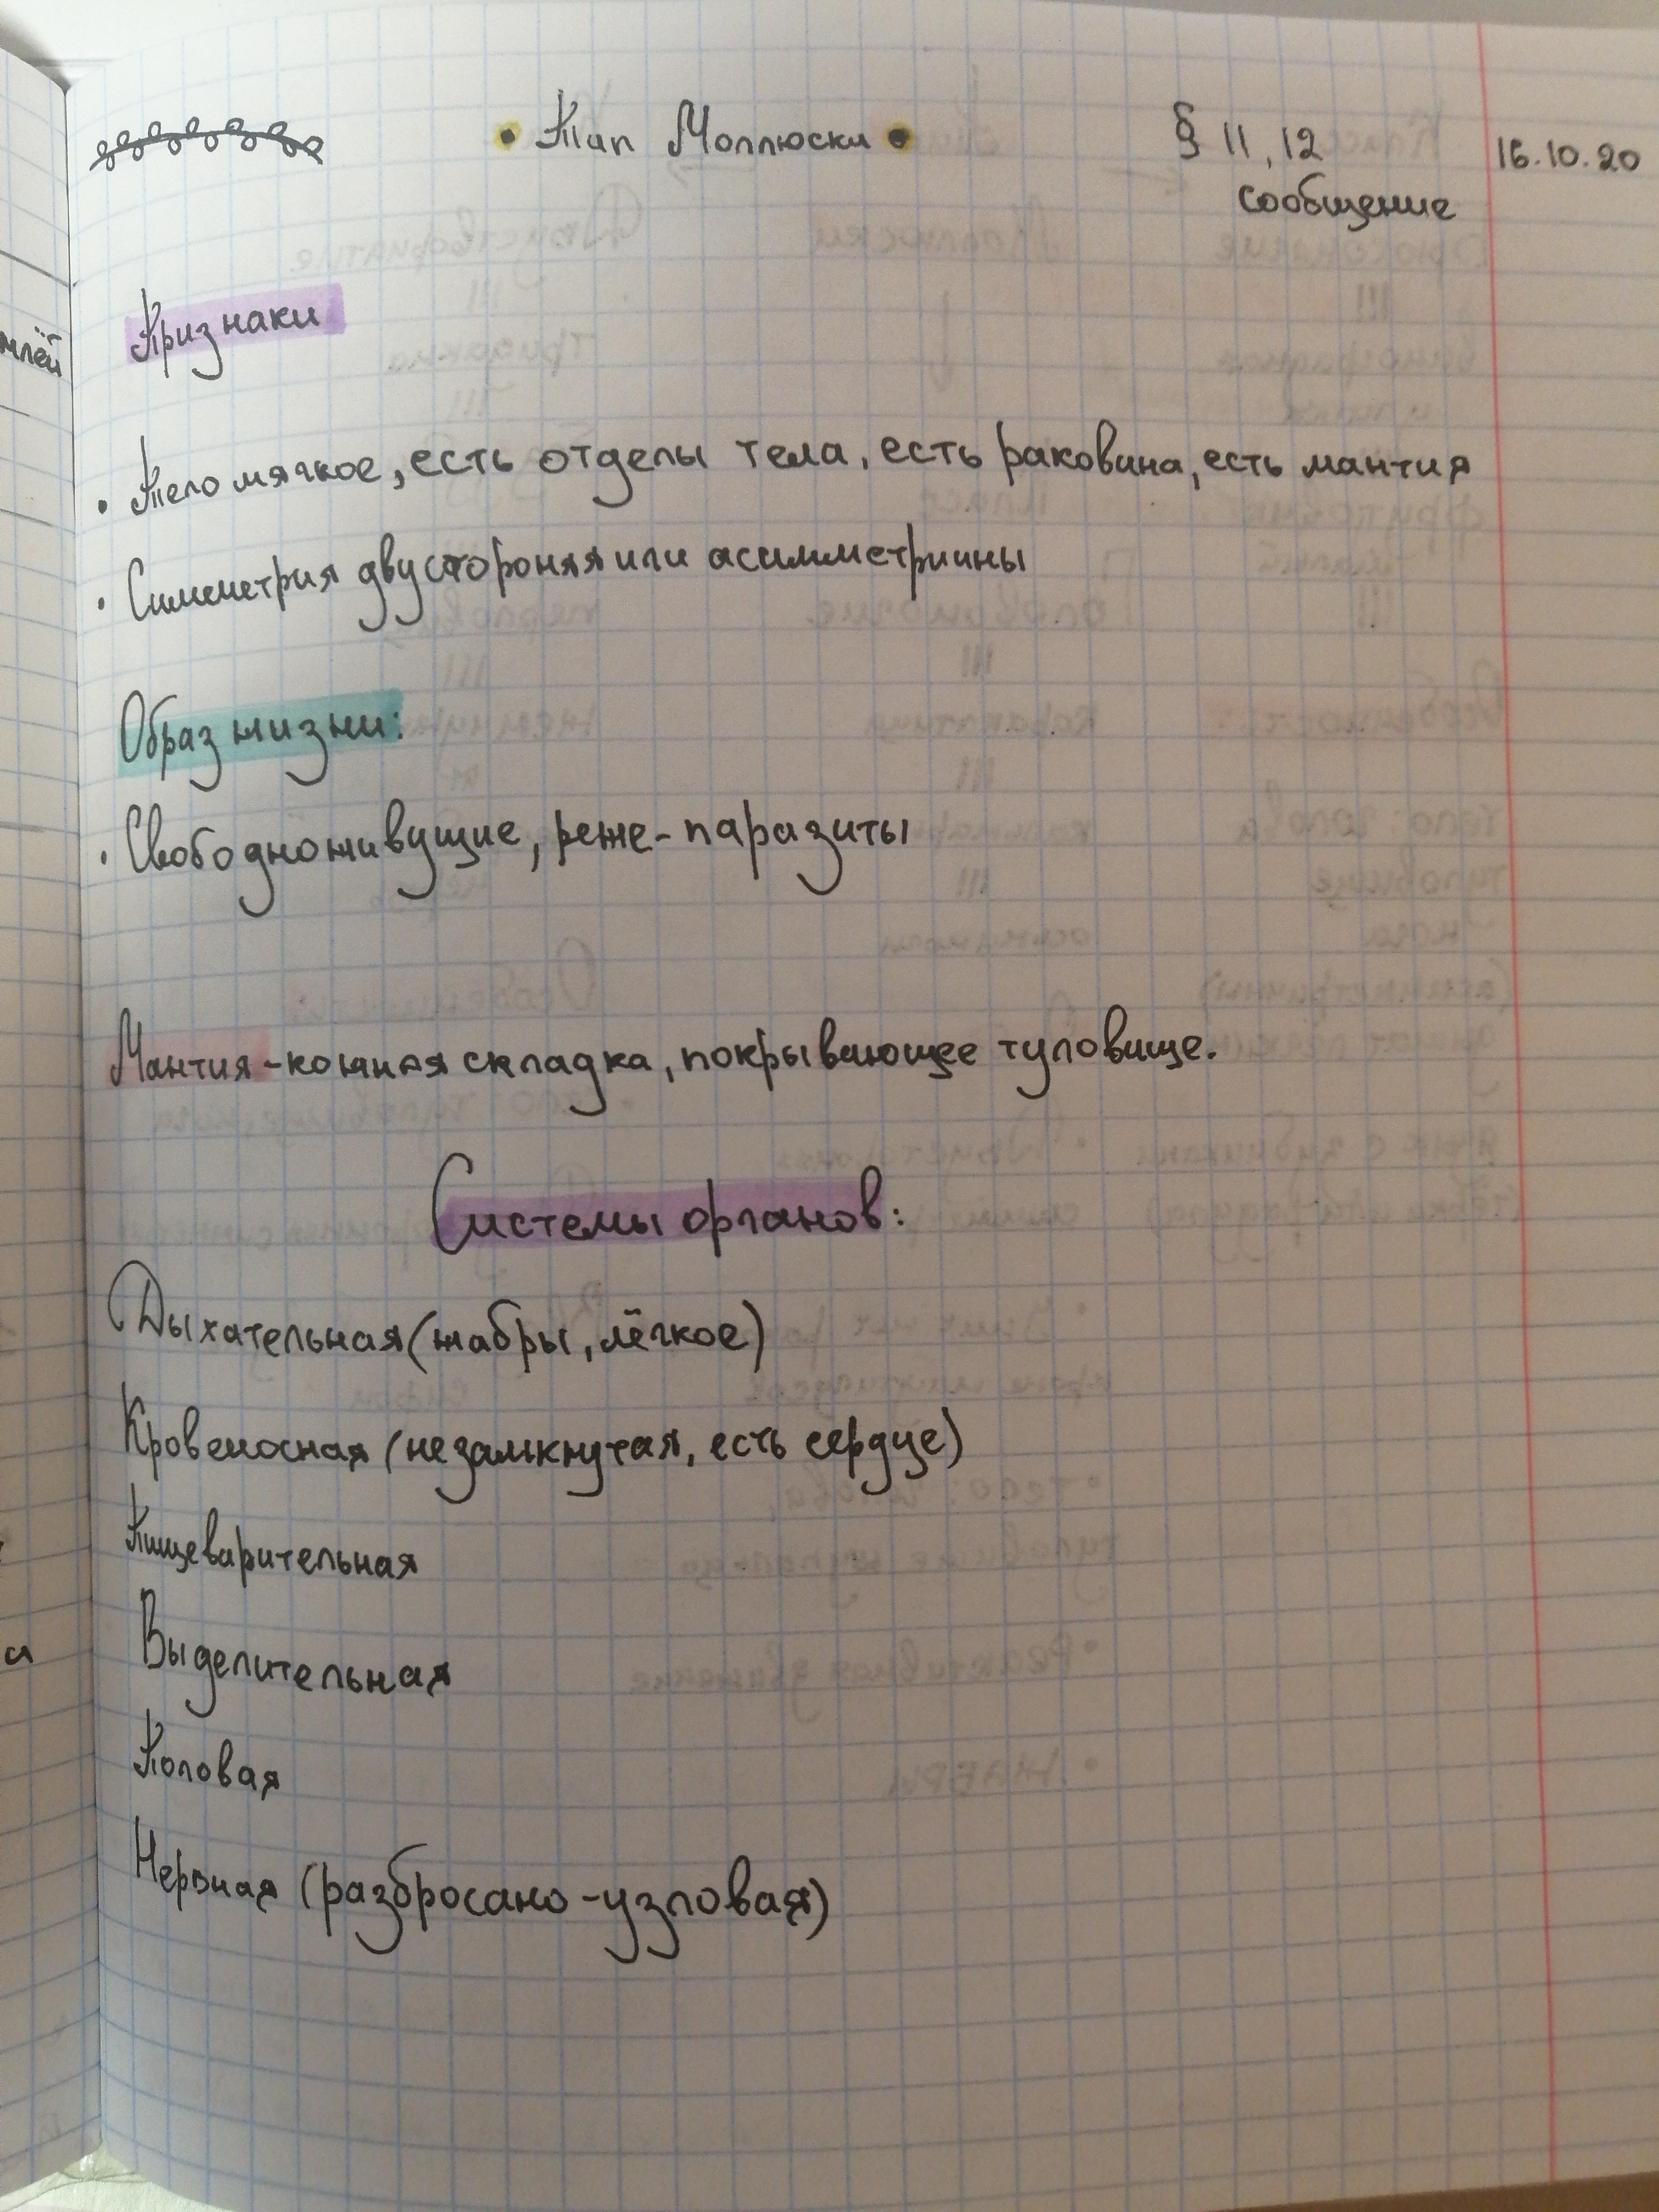 • Тип Моллюски • § 11, 12 16.10.20
сообщение
Признаки
• Тело мягкое, есть отделы тела, есть раковина, есть мантия
• Симметрия двустороняя или асимметрины
Образ жизни:
• Свободноживущие, реже - паразиты
Мантия - кожная складка, покрывающее туловище.
Системы органов:
Дыхательная (жабры, лёгкое)
Кровеносная (незамкнутая, есть сердце)
Пищеварительная
Выделительная
Половая
Нервная (разбросано-узловая)